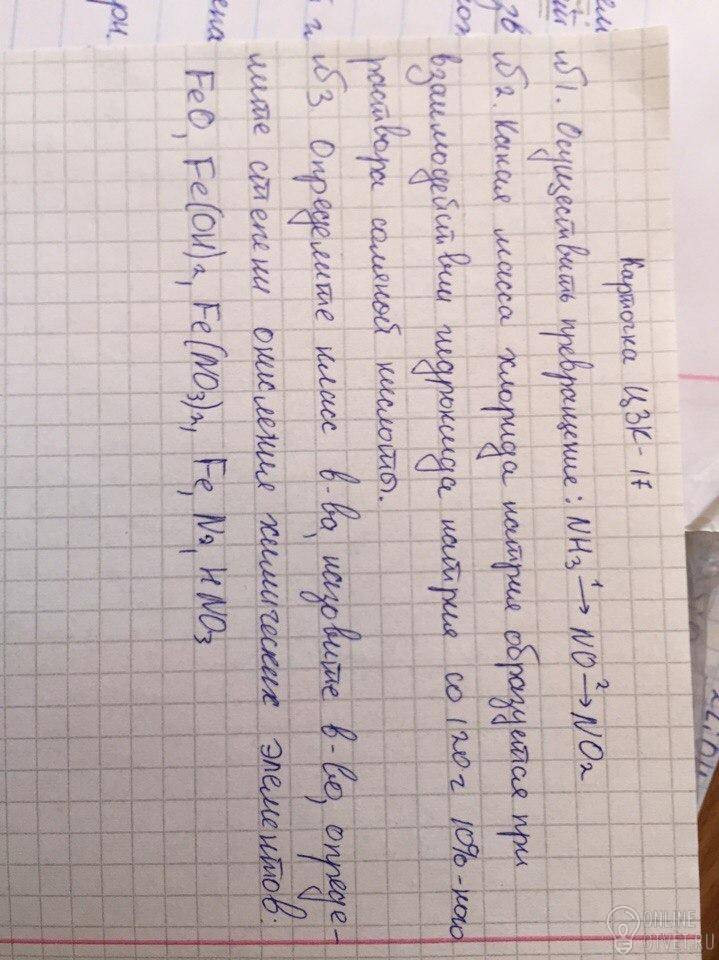 Карточка ЦЗК-17
№1. Осуществить превращение: NH₃ ¹→ NO ²→ NO₂
№2. Какая масса хлорида натрия образуется при
взаимодействии гидроксида натрия со 120г 10%-ного
раствора соляной кислоты.
№3. Определите класс в-ва, назовите в-во, опреде-
лите степени окисления химических элементов.
FeO, Fe(OH)₂, Fe(NO₃)₂, Fe, N₂, HNO₃
ONLINE
OTVET.RU